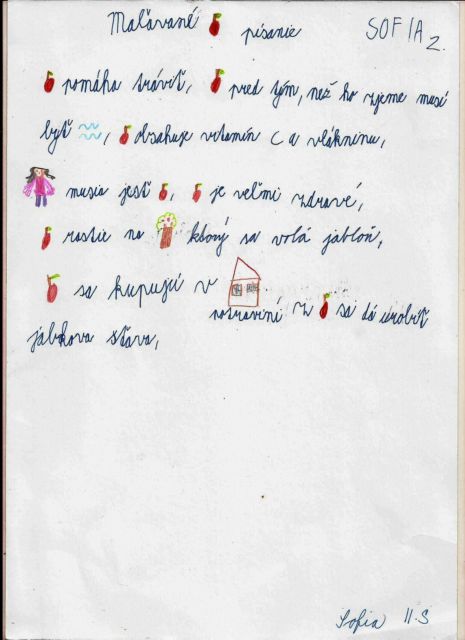 Maľované písanie
SOFIA Z.
pomáha tráviť, pred tým, než ho zjeme musí
byť , obsahuje vitamín C a vlákninu,
musia jesť , je veľmi zdravé,
rastie na ktorý sa volá jabloň,
sa kupujú v
potraviní z sa dá urobiť
jablkova šťava,
Sofia II.S